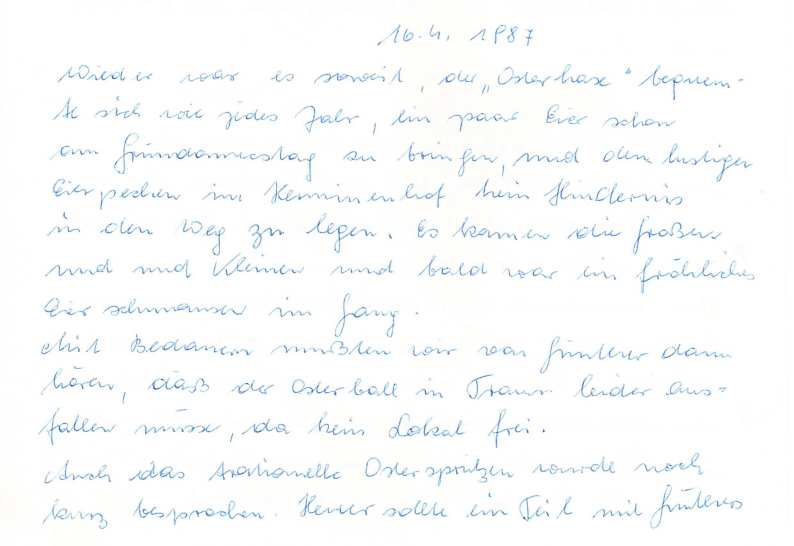 16.4. 1987
Wieder war es soweit, der „Osterhase" bequem-
te sich wie jedes Jahr, ein paar Eier schon
am Gründonnerstag zu bringen, und dem lustigen
Eierpecken im Hemminenhof kein Hindernis
in den Weg zu legen. Es kamen die Großen
und und Kleinen und bald war ein fröhliches
Eierschmausen im Gang.
Mit Bedauern mußten wir von Günterer dann
hören, daß der Osterball in Traun leider aus=
fallen müsse, da kein Lokal frei.
Auch das tradionelle Osterspritzen wurde noch
kurz besprochen. Heuer sollte ein Teil mit Günterers